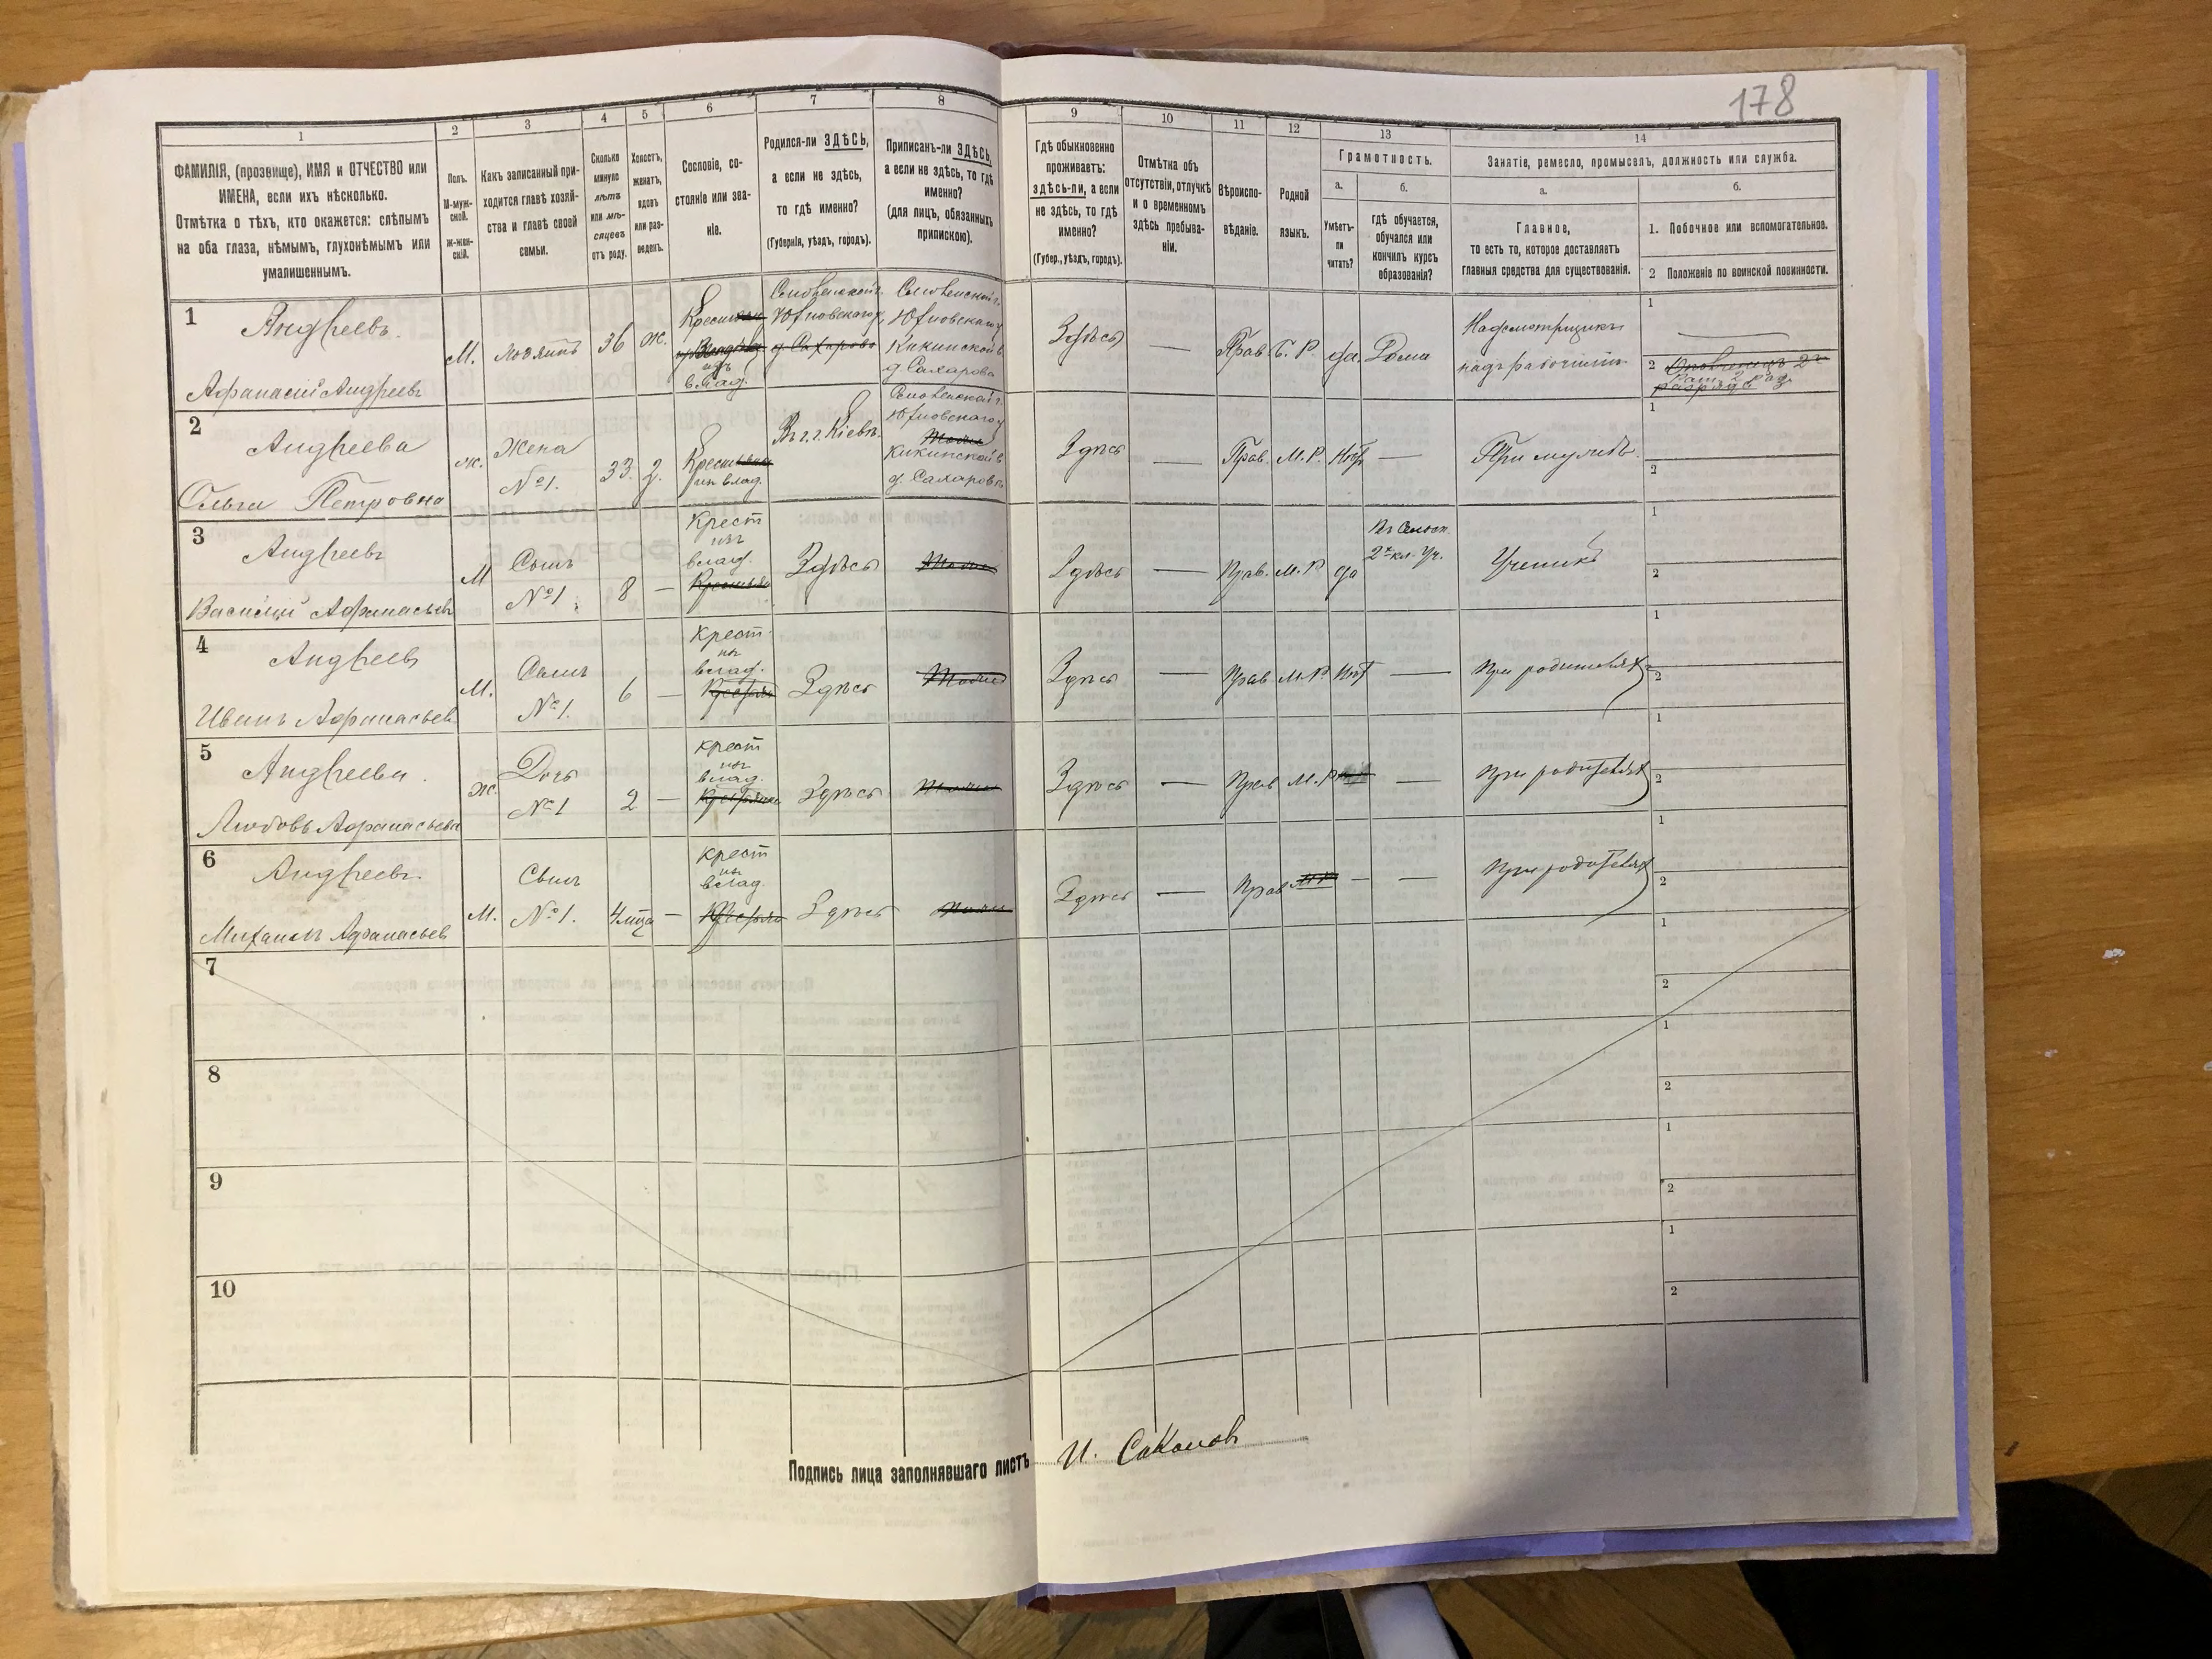 178
1
2
3
4
5
6
7
8
9
10
11
12
13
14
ФАМИЛІЯ, (прозвище), ИМЯ и ОТЧЕСТВО или
ИМЕНА, если ихъ нѣсколько.
Отмѣтка о тѣхъ, кто окажется: слѣпымъ
на оба глаза, нѣмымъ, глухонѣмымъ или
умалишеннымъ.
Полъ.
М-муж-
ской.
Ж-жен-
скій.
Какъ записанный при-
ходится главѣ хозяй-
ства и главѣ своей
семьи.
Сколько
минуло
лѣтъ
или мѣ-
сяцевъ
отъ роду.
Холостъ,
женатъ,
вдовъ
или раз-
веденъ.
Сословіе, со-
стояніе или зва-
ніе.
Родился-ли ЗДѢСЬ,
а если не здѣсь,
то гдѣ именно?
(Губернія, уѣздъ, городъ).
Приписанъ-ли ЗДѢСЬ,
а если не здѣсь, то гдѣ
именно?
(для лицъ, обязанныхъ
припискою).
Гдѣ обыкновенно
проживаетъ:
здѣсь-ли, а если
не здѣсь, то гдѣ
именно?
(Губер., уѣздъ, городъ).
Отмѣтка объ
отсутствіи, отлучкѣ
и о временномъ
здѣсь пребыва-
ніи.
Вѣроиспо-
вѣданіе.
Родной
языкъ.
Грамотность.
а.
б.
Умѣетъ-
ли
читать?
гдѣ обучается,
обучался или
кончилъ курсъ
образованія?
Занятіе, ремесло, промыселъ, должность или служба.
а.
б.
Главное,
то есть то, которое доставляетъ
главныя средства для существованія.
1. Побочное или вспомогательное.
2 Положеніе по воинской повинности.
1
Андреевъ.
Афанасій Андреевъ
М.
Хозяинъ
36
ж.
Крестьян
изъ
влад.
Смоленской г.
Юхновскаго у.
д. Сахарово
Смоленской г.
Юхновскаго у
Кикинской в
д. Сахарова
Здѣсь
—
Прав.
Б. Р.
да.
Дома
Надсмотрщикъ
надъ рабочими
1
2
разряда
2
Андреева
Ольга Петровна
ж.
Жена
№ 1.
33.
З.
Крестьянк
изъ влад.
Въ г. Кіевѣ.
Смоленской г.
Юхновскаго у
Кикинской в
д. Сахарова
Здѣсь
—
Прав.
М. Р.
Нѣт
—
При мужѣ.
1
2
3
Андреевъ
Василій Афанасьевъ
М
Сынъ
№ 1
8
—
Крест
изъ
влад.
Здѣсь
Здѣсь
—
Прав.
М. Р
да
2х кл. Уч.
Ученикъ
1
2
4
Андреевъ
Иванъ Афанасьев.
М.
Сынъ
№ 1.
6
—
Крест.
изъ
влад.
Здѣсь
Здѣсь
—
Прав
М. Р
Нѣт
—
При родителях
1
2
5
Андреева.
Любовь Афанасьева
ж.
Дочь
№ 1
2
—
крест
изъ
влад.
Здѣсь
Здѣсь
—
Прав
М. Р
—
При родителях
1
2
6
Андреевъ
Михаилъ Афанасьев
М.
Сынъ
№ 1.
4 мца
—
крест
изъ
влад.
Здѣсь
Здѣсь
—
Прав
М Р
—
—
При родителях
1
2
7
1
2
8
1
2
9
1
2
10
1
2
Подпись лица заполнявшаго листъ
И. Саконов